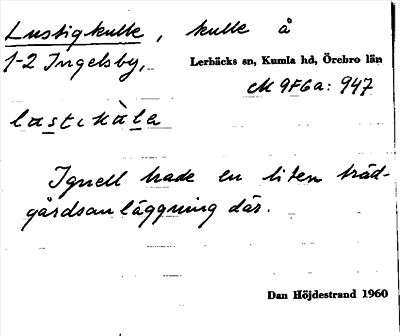 Lustigkulle, kulle å
1-2 Ingelsby, Lerbäcks sn, Kumla hd, Örebro län
M 9F6a: 947
Ignell hade en liten träd-
gårdsanläggning där.
Dan Höjdestrand 1960